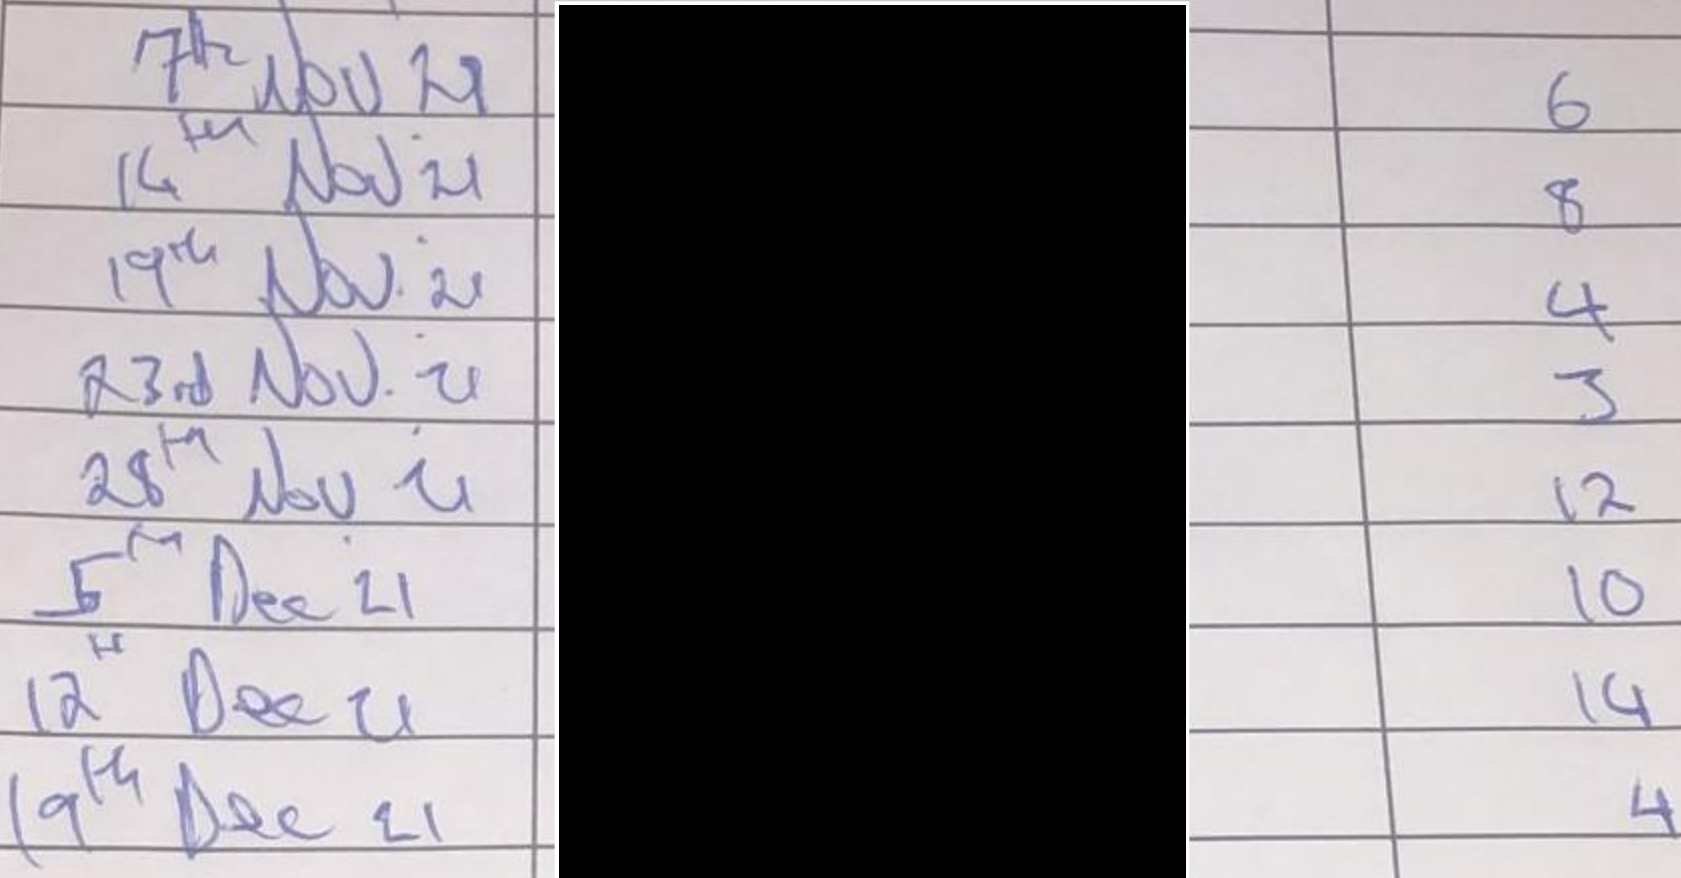 7th Nov 21 6
14th Nov '21 8
19th Nov. '21 4
23rd Nov. '21 3
28th Nov '21 12
5th Dec '21 10
12th Dec 21 14
19th Dec 21 4